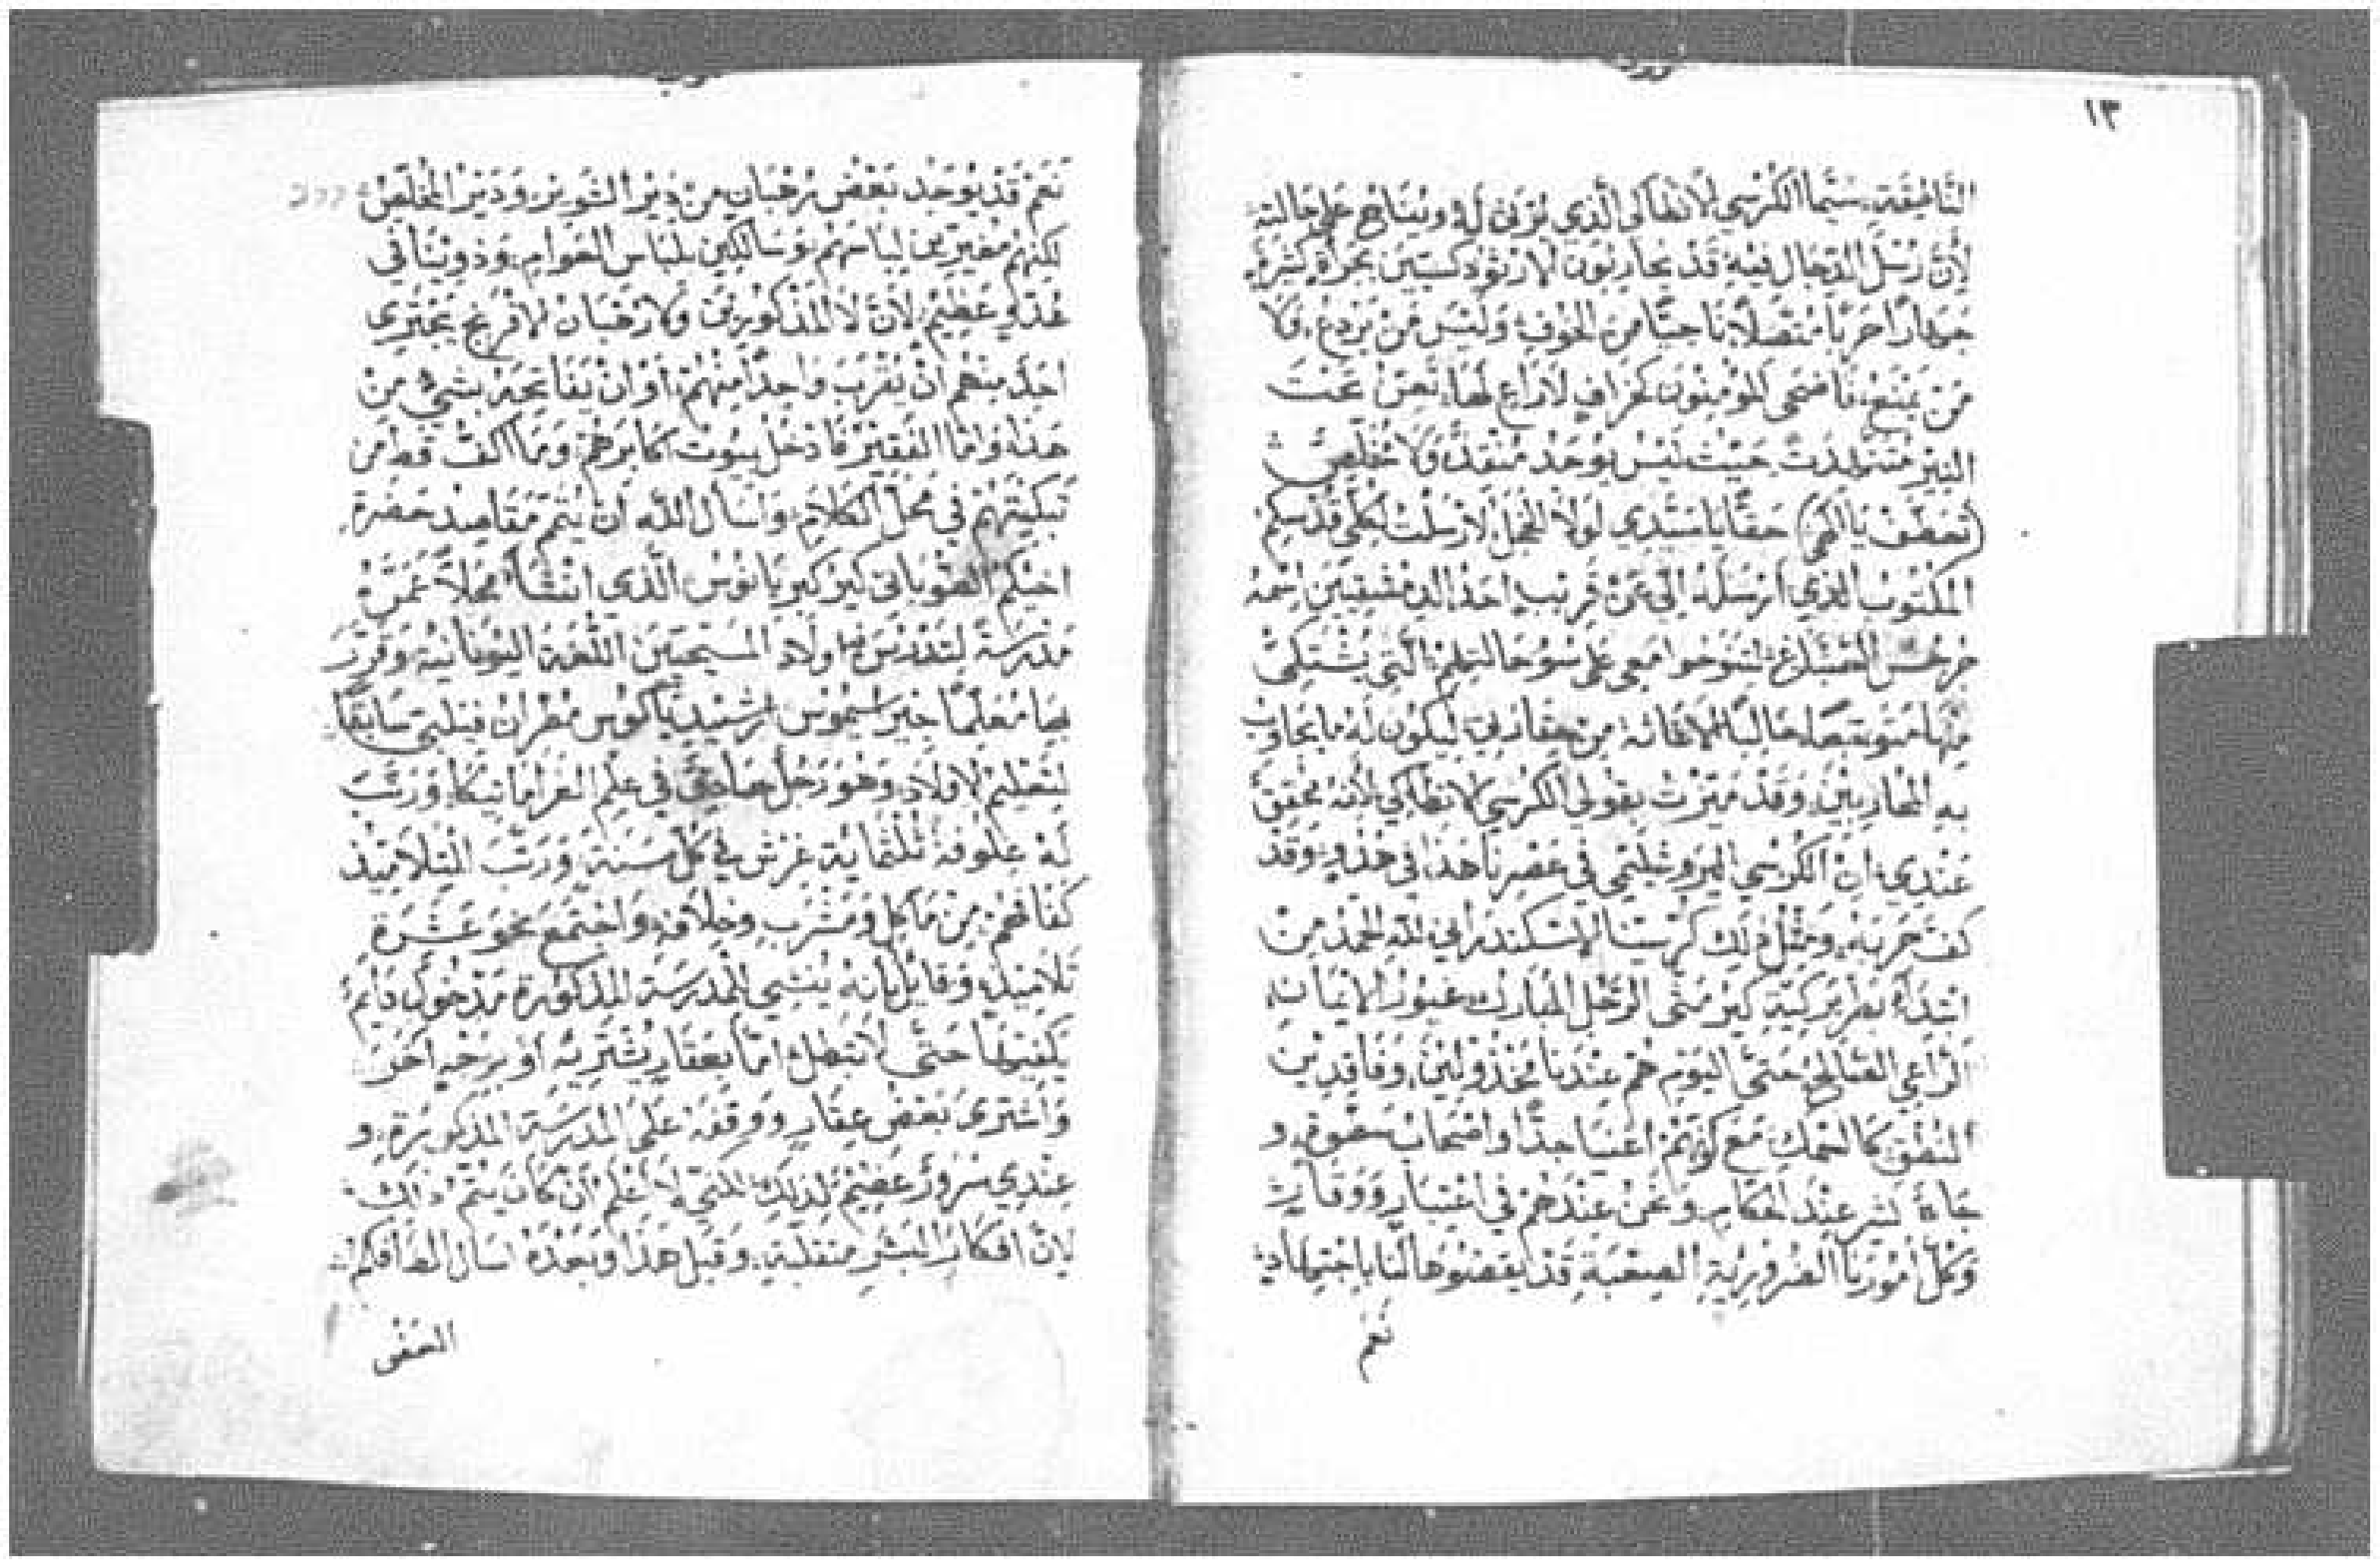 ١٣
النَّاطِقَةِ. سَيَّما الكُرْسِي الأنطَاكي الَّذي يُرْثَى لَهُ وَيُنَاحُ عَلى حَالتِهِ
لأنَّ رُسُلَ الدَّجَال فيْهِ قَدْ يُحَارِبُونَ الأرْثُوْدُكسيّين بِجَراةٍ كثيْرةٍ
جِهَارًا حَربًا مُتَّصَلاً نَاجيًا مِنَ الخوْفِ وَليْسَ مَنْ يَرْدَعْ. وَلا
مَنْ يَمْنَعْ. فَاضْحَى المُؤْمِنُونَ كخِرَافٍ لاَ رَاعٍ لَهَا. نَحنُ تَحْتَ
النير حَيْثُ لَيْسَ يُوجَدْ مُنْقِذٌ وَلاَ مُخَلِّصٌ
(تَعَطَّفْ يَا الٰهي) حَقًّا يَا سَيّدي لَوْلاَ الخجَلْ لأرْسَلْتُ لكلي قُدْسِكُمْ
المَكْتُوْبَ الَّذي أرْسَلَهُ اليَّ عَنْ قَرِيْبٍ احَدُ الدِمَشْقِيّين اسْمُهُ
جُرْجُس لِتَنُوْحُوا مَعِي عَلى سُوْءِ حَالتِهِمْ الَّتي يَشْتَكِيْ
مِنْهَا طَالبًا الإغَاثَهْ مِنْ حَقَارَتي. ليَكُوْنَ لَهُ مَا يُحَاوِبْ
بهِ المُحَارِبيْن. وَقَدْ مَيَّزْتُ بقَوْلي الكُرْسِي الأنطَاكي لأنَّهُ مُحَقَّقٌ
عَنْدِي. انَّ الكُرْسِي اليَرُوشَليْمي في عَصْرِنَا هَذَا في هُدُوٍ. وَقَدْ
كَفَّ حَربَهْ. وَمِثْلُ ذَلِكَ كُرْسِيّنَا الاسْكَندَرَاني للهِ الحَمْدُ مِنْ
ابْتِدَاءِ بَطْرِيَركِيَّةِ كيْر مَتَّى الرَّجُلِ المُبَارَك غَيُورِ الإيمَانِ
الرَّاعي الصَّالِحْ وَحَتَّى اليَوْمِ هُمْ عِنْدَنَا مَخْذُوْليْن. وَفَاقِدِيْن
النُّطْقِ كَالسَّمَكِ مَعَ كَوْنِهُمْ اغنيَا جِدًّا وَاصْحَابَ سَطْوةٍ. و
جَاهٍ عِنْدَ الحكّامِ. وَنَحْنُ عِنْدَهُمْ في اعْتِبَارٍ وَوَقَارٍ
وَكُلّ أمُوْرِنَا الضَّرُوْرِيَّةِ الصَعْبَةِ قَدْ يَقضُوْهَا لنَا باجْتِهَادٍ.
نَعَم
نَعَمْ قَدْ يُوْجَدْ بَعْضُ رُهْبَانٍ مِنْ دَيْرِ الشُّوير. وَدَيْرِ المُخَلِّصْ
لكِنَّهُمْ مُغَيّرِيْن لِبَاسَهُمْ وَسَالكِيْن بلبَاسِ العَوَامِ. وَذَوِيْنَا في
هُدُوٍ عَظِيْمٍ. لأنَّ لاَ المَذْكُوْرِيْنَ وَلاَ رُهْبَانَ الأفْرَنج يَجْتَرِى
احَدٌ مِنْهُمْ انْ يَقْرَبَ وَاحِدًا مِنْهُمْ. أوْ انْ يُفَاتِحَهُ بشَيْءٍ مِنْ
هَذَا وَامَّا الفَقيْرْ فَادْخُلُ بيُوْتَ اكَابِرِهُمْ. وَمَا اكُفّ قَطْ مِنْ
تَبْكِيْتِهِمْ في مَحَلِّ الكَلاَمِ. وَاسْأَلُ اللهَ انْ يُتِمَّ مَقَاصِدَ حَضْرَةِ
اخيْكُمْ الطُّوبَاني كيْر كِبْريَانُوْسْ الَّذي انْشَأ مَحَلاً عَمَّرَهُ
مَدْرَسَةً لتَدْرِيْسِ اولاَدِ المَسِيْحيّيْن اللُّغَةَ اليُونَانيَّه. وَقَرَّرَ
بهَا مُعَلّمًا مُطْرَانْ سَابقًا
لتَعْليْمِ الأوْلاَدِ. وَهُوَ رَجُل حَاذِق في عِلْمِ الغرَامَاتيكَا. وَرَتَّبَ
لَهُ عَلُوفَةً ثَلثمَايَة غِرْش في كُلّ سَنَةٍ. وَرَتَّبَ التَّلاَمِيْذ
كَفَافَهُمْ. مِنْ مَاكَلٍ وَمَشْرَبٍ وَخِلاَفِهِ. وَاجْتَمَعَ نَحْوَ عَشَرَةِ
تَلاَمِيْذٍ. وَقَايلٌ بأنَّهُ يُنْشِي للمَدْرَسَةِ المَذْكُوْرَةِ مَدْخُوْل دَايْم
يَكْفيْهَا حَتَّى لا تَبْطُلْ امَّا بعَقَارٍ يَشْتَرِيْهِ أوْ بوَجْهٍ آخَرَ
وَأشْتَرَى بَعْضَ عَقَارٍ وَوَقَفَهُ عَلَى المَدْرَسَةِ المَذْكُوْرَةِ. و
عِنْدِي سُرُوْرٌ عَظِيْمٌ لِذَلِكَ لا أعْلَمُ انْ كَانَ يَتُمّ ذَلكَ
لأنَّ افْكَارَ البَشَرِ مُنْقَلِبَةٍ. وَقَبْلَ هَذَا وَبَعْدَهُ اسْأَلُ الطَافَكُمْ
العَفْو